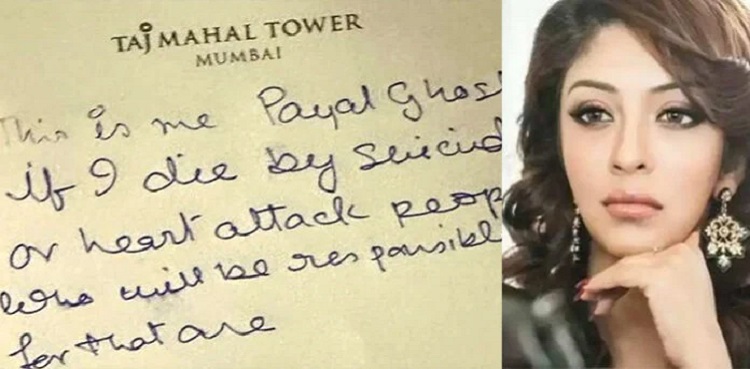 TAJ MAHAL TOWER
MUMBAI
This is me Payal Ghos
if I die by Suicid
or heart attack peop
who will be responsible
for that are